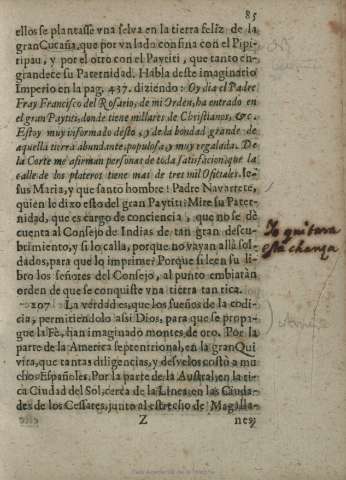 85
ellos se plantasse vna selva en la tierra feliz de la
gran Cucaña, que por vn lado confina con el Pipi-
ripau, y por el otro con el Paytiti, que tanto en-
grandece su Paternidad. Habla deste imaginario
Imperio en la pag. 437. diziendo: Oy dia el Padre
Fray Francisco del Rosario, de mi Orden, ha entrado en
el gran Paytiti, donde tiene millares de Christianos, &c.
Estoy muy informado desto, y de la bondad grande de
aquella tierra abundante, populosa, y muy regalada. De
la Corte me afirman personas de toda satisfacion, que la
calle de los plateros tiene mas de tres mil Oficiales. Ie-
sus Maria, y que santo hombre! Padre Navarrete,
quien le dixo esto del gran Paytiti? Mire su Pater-
nidad, que es cargo de conciencia, que no se dè
cuenta al Consejo de Indias de tan gran descu-
brimiento, y si lo calla, porque no vayan allà sol-
dados, para què lo imprime? Porque si leen su li-
bro los señores del Consejo, al punto embiaràn
orden de que se conquiste vna tierra tan rica.
207 La verdad es, que los sueños de la codi-
cia, permitiendolo assi Dios, para que se propa-
gue la Fè, han imaginado montes de oro. Por la
parte de la America septentrional, en la gran Qui
vira, que tantas diligencias, y desvelos costò a mu
chos Españoles. Por la parte de la Austral, en la ri-
ca Ciudad del Sol, cerca de la Linea, en las Ciuda-
des de los Cessares, junto al estrecho de Magalla-
Z nes;
Yo quitara
esta chanza